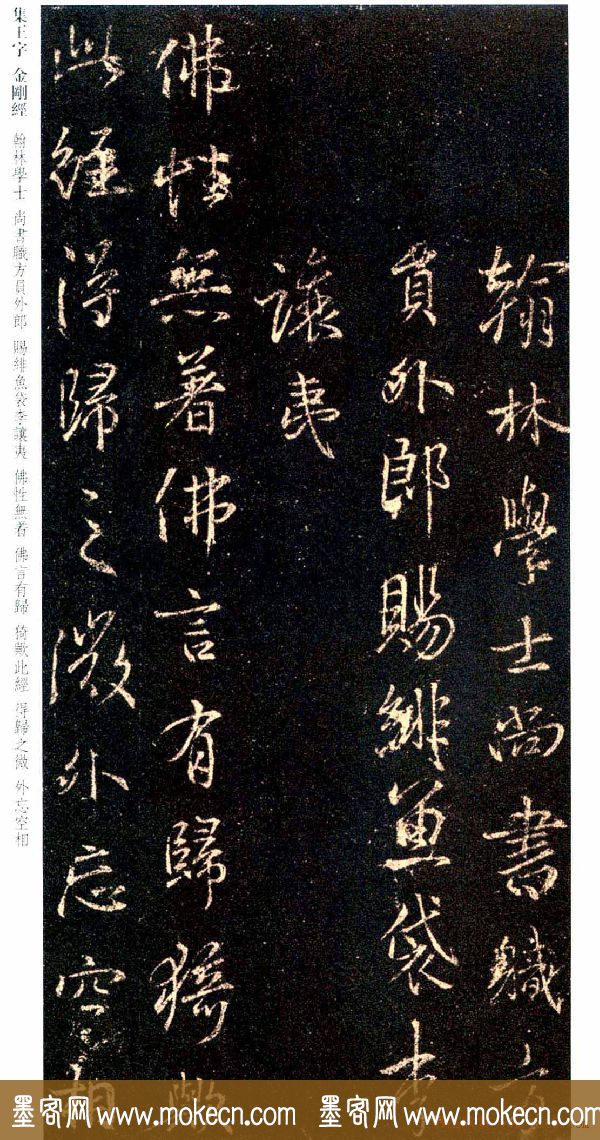 翰林學士尚書職方
員外郎賜緋魚袋李
讓夷
佛性無著佛言有歸猗歟
此經得歸之微外忘空相
集王字 金剛經 翰林學士 尚書職方員外郎 賜緋魚袋李讓夷 佛性無著 佛言有歸 猗歟此經 得歸之微 外忘空相
墨客网 www.mokecn.com 墨客网 www.mokecn.com